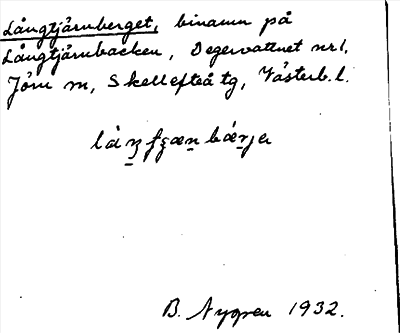 Långtjärnberget, binamn på
Långtjärnbacken, Degervattnet nr 1,
Jörn sn, Skellefteå tg, Västerb. l.
B. Nygren 1932.